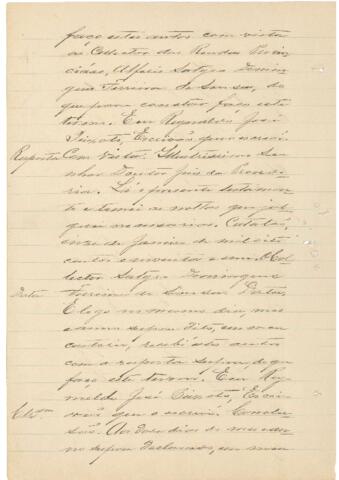 faço estes autos com vista
ao Collector das Rendas Provin
ciaes, Alferes Satyro Domin
gues Ferreira de Sousa, do
que para constar faço este
termo. Eu Reginaldo José
Peixoto, Escrivão que o escrevi
Resposta Com vista. Illustrissimo Se
nhor Doutor Juiz da Provedo
ria. Li o presente testamen
to e tomei as nottas que jul
guei necessarias. Catalão,
de Janeiro de mil oito
centos e noventa e um. O Col
lector Satyro Domingues
Data Ferreira de Sousa. Data.
E logo no mesmo dia, mez
e anno supra dito, em meu
cartorio, recebi estes autos
com a resposta supra, do que
faço este termo. Eu Reg
José Peixoto, Escri
vão que o escrevi. Conclu
são. Aos doze dias do mez e an
no supra declarado, em meu